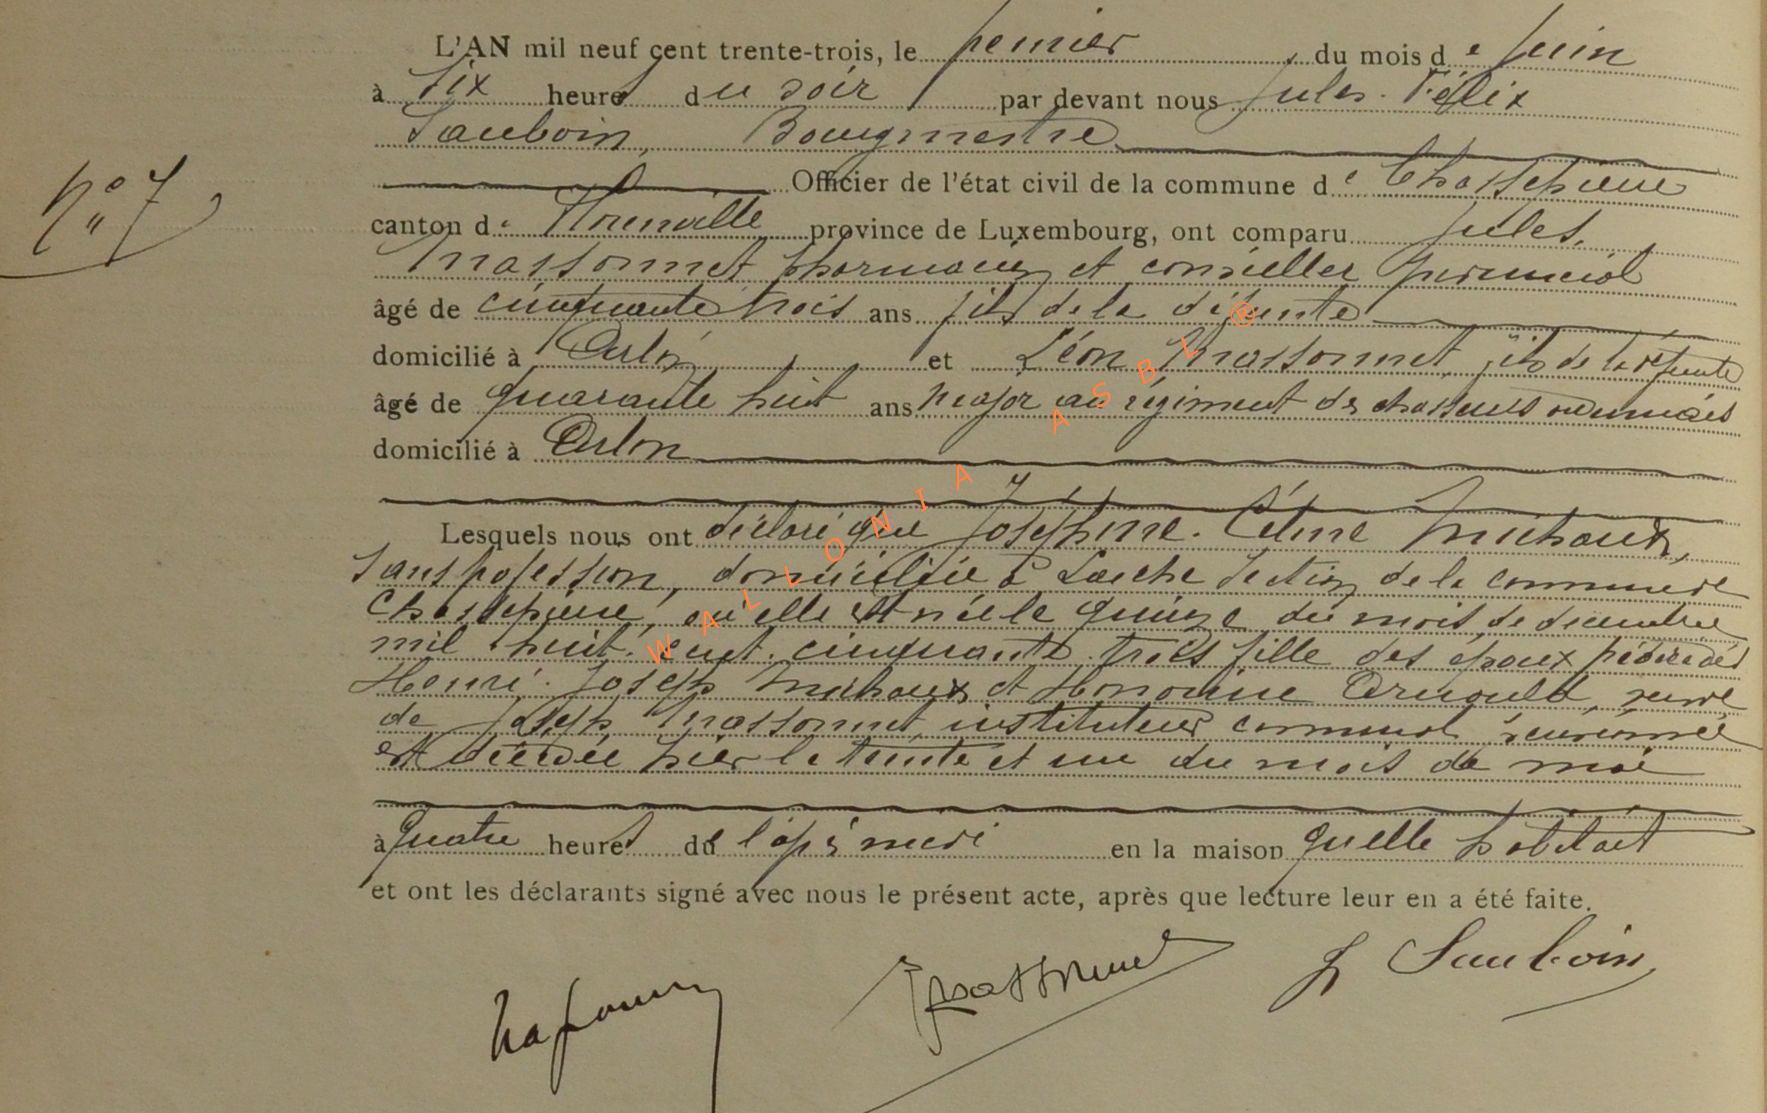 L'AN mil neuf cent trente-trois, le premier du mois de Juin
à six heures du soir par devant nous Jules-Félix
Sauboin, Bourgmestre
Officier de l'état civil de la commune de Chassepierre
N° 7
canton de Florenville province de Luxembourg, ont comparu Jules
Massonnet pharmacien et conseiller provincial
âgé de cinquante trois ans fils de la défunte
domicilié à Arlon et Léon Massonnet, fils de la défunte
âgé de quarante huit ans major au régiment des chasseurs ardennais
domicilié à Arlon
Lesquels nous ont déclaré que Joséphine-Céline Michaux,
sans profession, domiciliée à Laiche section de la commune
Chassepierre, où elle est née le quinze du mois de décembre
mil huit-cent-cinquante-trois fille des époux prédécédés
Henri-Joseph Michaux et Honorine Arnould, veuve
de Joseph Massonnet, instituteur communal pensionné
est décédée hier le trente et un du mois de mai
à quatre heures de l'après midi en la maison qu'elle habitait
et ont les déclarants signé avec nous le présent acte, après que lecture leur en a été faite.
Massonnet J Sauboin
WALLONIA ASBL ®